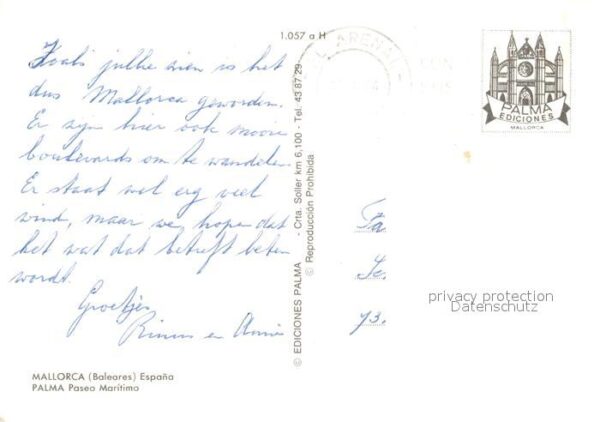 1.057 a H
Zoals jullie zien is het
dus Mallorca geworden.
Er zijn hier ook mooie
boulevards om te wandelen
Er staat wel erg veel
wind, maar we hopen dat
het wat dat betreft beter
wordt.
Groetjes
Rinus en Annie
MALLORCA (Baleares) España
PALMA Paseo Marítimo
© EDICIONES PALMA - Crta. Soller km 6,100 - Tel. 43 87 29
© Reproducción Prohibida
ARENAL
PALMA
EDICIONES
MALLORCA
Fa
Je
privacy protection
Datenschutz